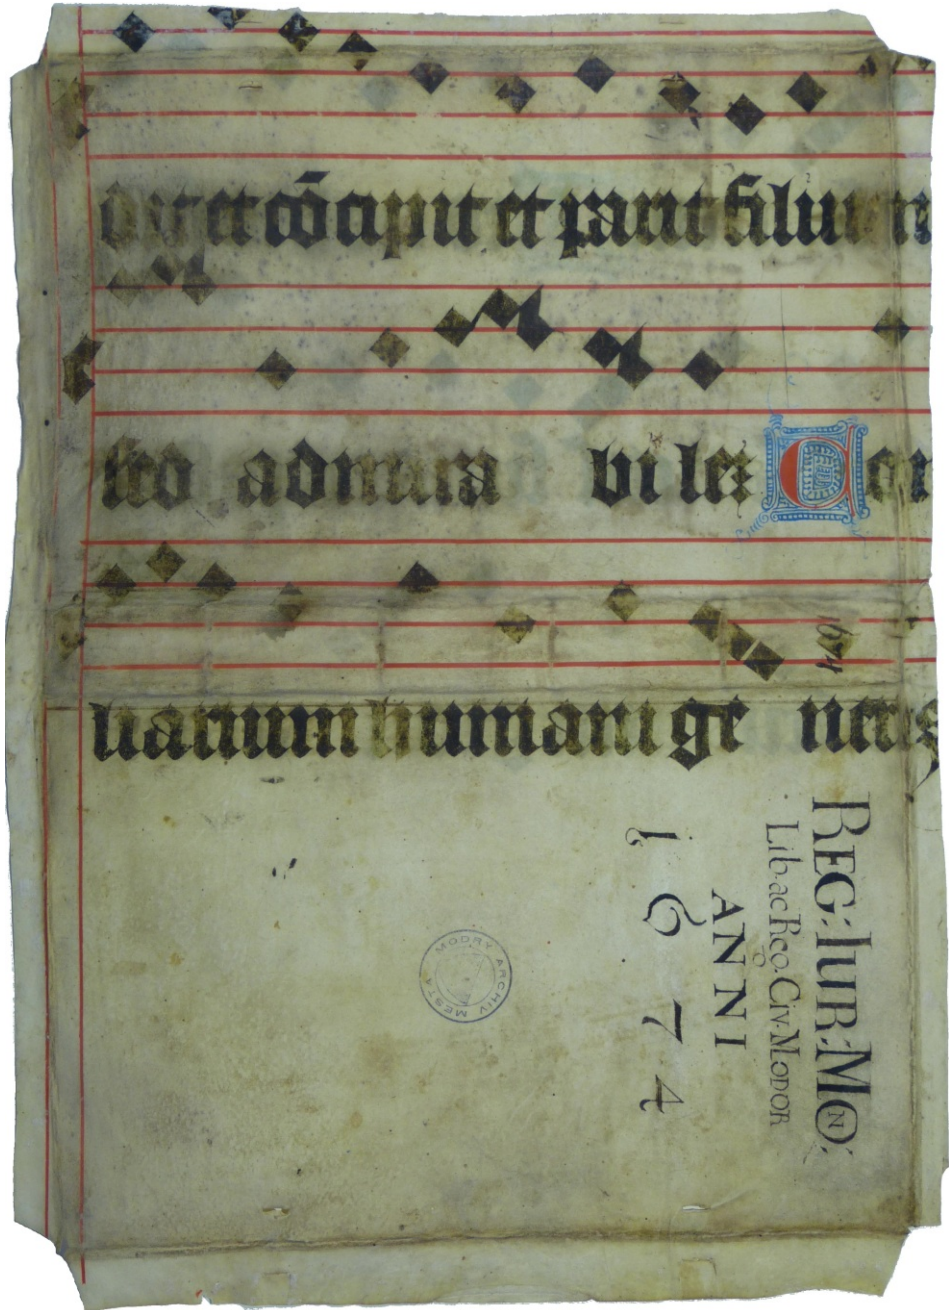 et cōcipit et parit filium
admira bi les Con
liarium humani ge neris
1674
REG: IUR: MON:
Lib. ac Reg. Civ. MODOR
ANNI
1674
ARCHIV MESTA MODRY